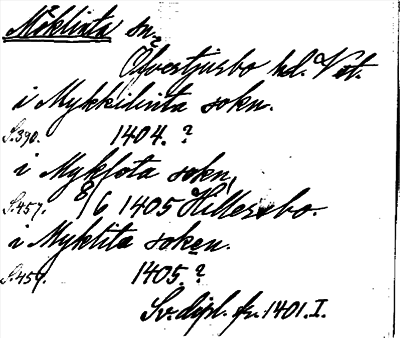 Möklinta sn.
Övertjurbo hd. Vst.
i Mykkilinta sokn.
S.390. 1404.?
i Myklota sokn,
S.457. 8/6 1405 Hillersbo.
i Myktita soken.
S.459. 1405.?
Sv. dipl. fr. 1401. I.